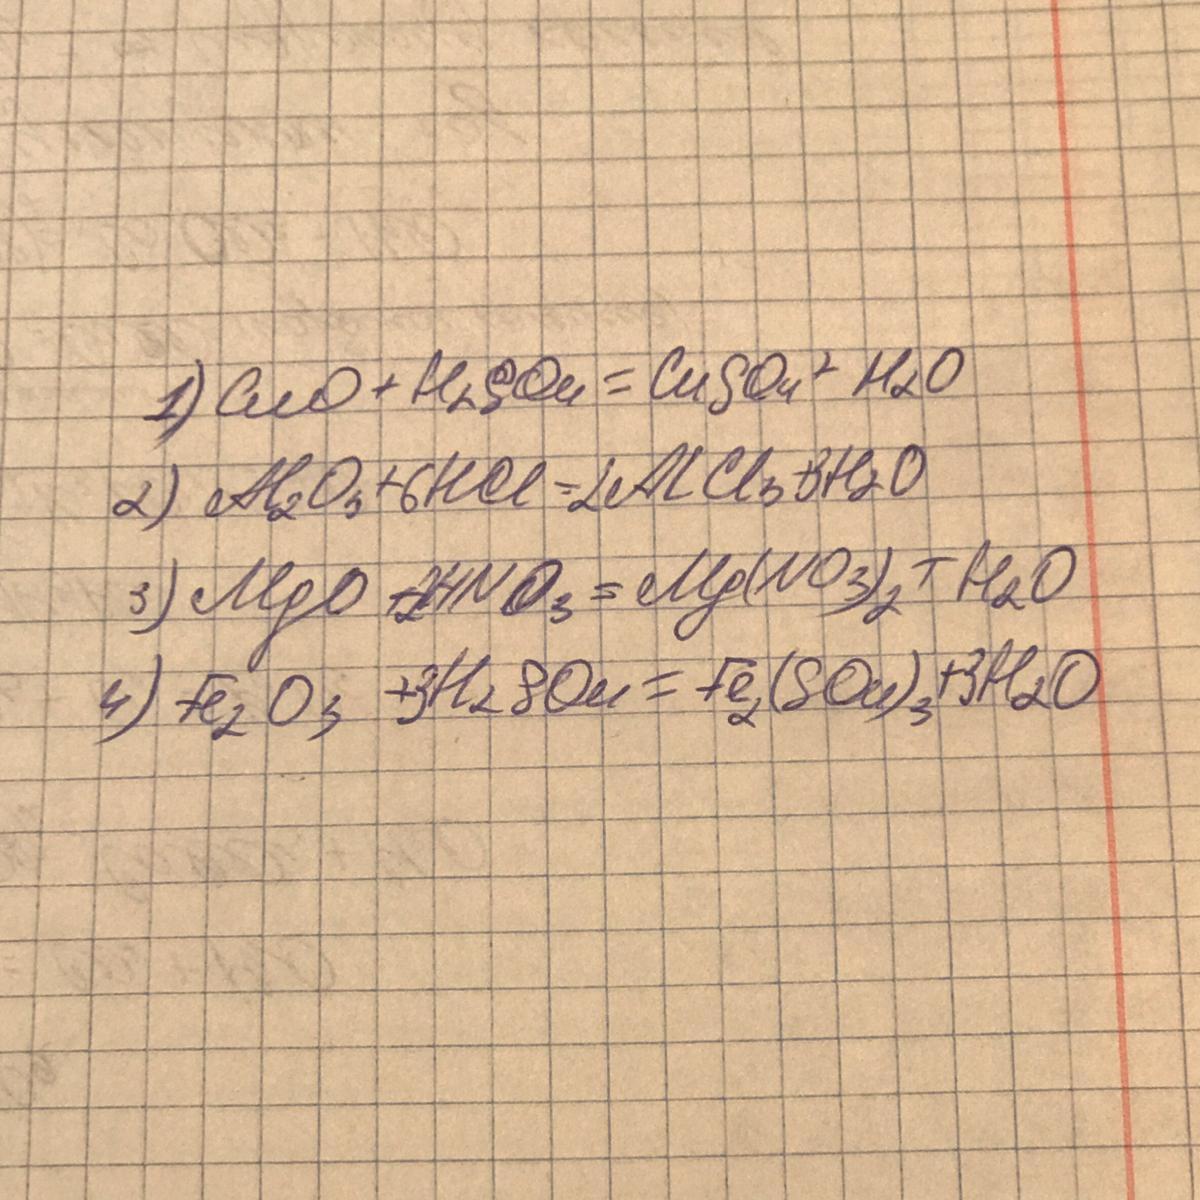 1) CuO + H₂SO₄ = CuSO₄ + H₂O
2) Al₂O₃ + 6HCl = 2AlCl₃ + 3H₂O
3) MgO + 2HNO₃ = Mg(NO₃)₂ + H₂O
4) Fe₂O₃ + 3H₂SO₄ = Fe₂(SO₄)₃ + 3H₂O